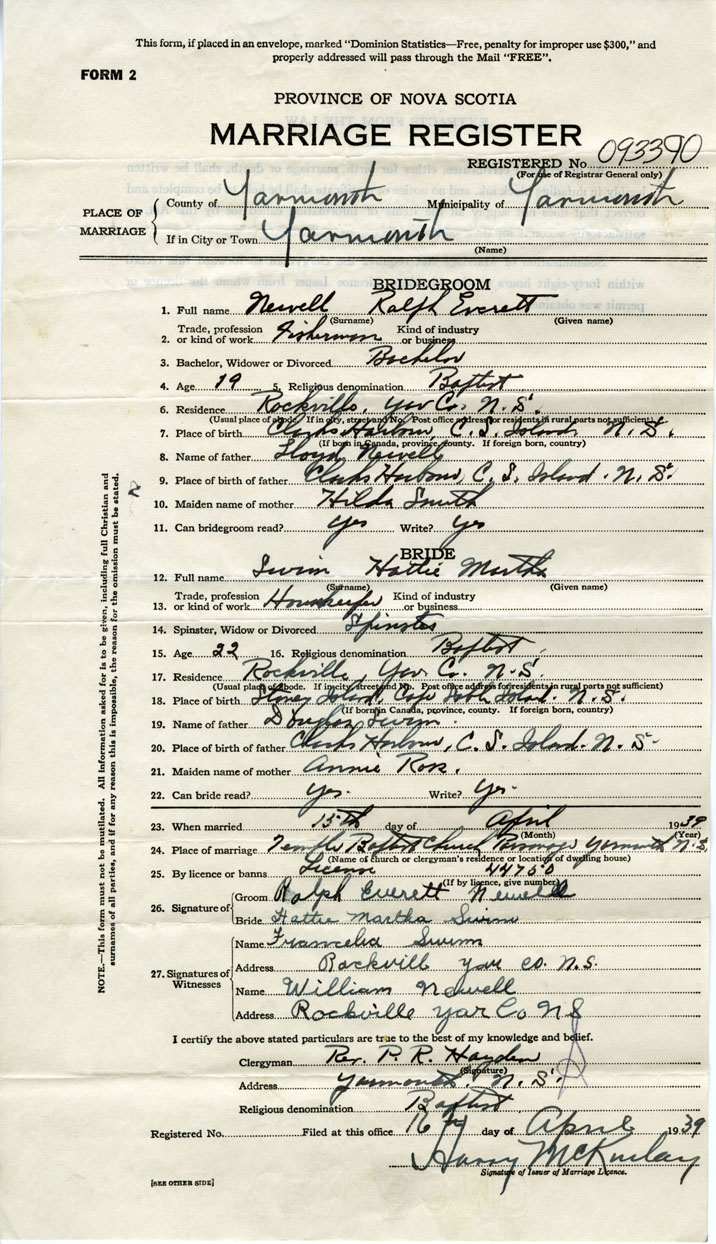 This form, if placed in an envelope, marked "Dominion Statistics—Free, penalty for improper use $300," and
properly addressed will pass through the Mail "FREE".
FORM 2
PROVINCE OF NOVA SCOTIA
MARRIAGE REGISTER
REGISTERED No. 093390
(For use of Registrar General only)
PLACE OF MARRIAGE
County of Yarmouth Municipality of Yarmouth
If in City or Town Yarmouth
(Name)
BRIDEGROOM
1. Full name Newell Ralph Everett
(Surname) (Given name)
2. Trade, profession or kind of work Fisherman Kind of industry or business
3. Bachelor, Widower or Divorced Bachelor
4. Age 19 5. Religious denomination Baptist
6. Residence Rockville, Yar Co. N.S.
(Usual place of abode. If in city, street and No. Post office address for residents in rural parts not sufficient)
7. Place of birth Clarks Harbour, C. S. Island N.S.
(If born in Canada, province, county. If foreign born, country)
8. Name of father Lloyd Newell
9. Place of birth of father Clarks Harbour, C. S. Island. N.S.
10. Maiden name of mother Hilda Smith
11. Can bridegroom read? yes Write? yes
BRIDE
12. Full name Swim Hattie Martha
(Surname) (Given name)
13. Trade, profession or kind of work Housekeeper Kind of industry or business
14. Spinster, Widow or Divorced Spinster
15. Age 22 16. Religious denomination Baptist
17. Residence Rockville, Yar Co. N.S
(Usual place of abode. If in city, street and No. Post office address for residents in rural parts not sufficient)
18. Place of birth Stoney Island, Cape Sable Island. N.S.
(If born in Canada, province, county. If foreign born, country)
19. Name of father Douglas Swim
20. Place of birth of father Clarks Harbour, C. S. Island. N.S.
21. Maiden name of mother Annie Ross.
22. Can bride read? yes. Write? yes.
23. When married 15th day of April 1939
(Month) (Year)
24. Place of marriage Temple Baptist Church Parsonage Yarmouth N.S.
(Name of church or clergyman's residence or location of dwelling house)
25. By licence or banns License 44750
(If by licence, give number)
26. Signature of Groom Ralph Everett Newell
Bride Hattie Martha Swim
27. Signatures of Witnesses
Name Francelia Swim
Address Rockvill yar co. N.S.
Name William Newell
Address Rockville yar Co NS
I certify the above stated particulars are true to the best of my knowledge and belief.
Clergyman Rev. P. R. Hayden
(Signature)
Address Yarmouth, N.S.
Religious denomination Baptist
Registered No. Filed at this office 16th day of April 1939
Harry McKinlay
Signature of Issuer of Marriage Licence.
[SEE OTHER SIDE]
NOTE.—This form must not be mutilated. All information asked for is to be given, including full Christian and
surnames of all parties, and if for any reason this is impossible, the reason for the omission must be stated.